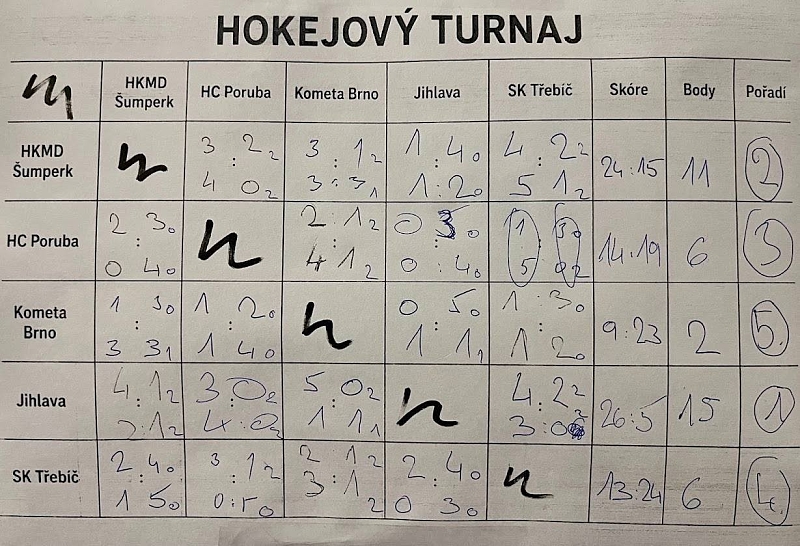 HOKEJOVÝ TURNAJ
HKMD Šumperk HC Poruba Kometa Brno Jihlava SK Třebíč Skóre Body Pořadí
HKMD Šumperk 3 : 2 2 3 : 1 2 1 4 0 4 : 2 2 24:15 11 2
4 0 2 3 : 3 1 1 : 2 0 5 1 2
HC Poruba 2 : 3 0 2 : 1 2 0 5 0 1 3 0 14:19 6 3
0 4 0 4 1 2 0 : 4 0 5 0 2
Kometa Brno 1 : 3 0 1 : 2 0 0 : 5 0 1 : 3 0 9:23 2 5.
3 3 1 1 4 0 1 1 1 1 2 0
Jihlava 4 : 1 2 3 : 0 2 5 : 0 2 4 : 2 2 26:5 15 1
2 : 1 2 4 : 0 2 1 1 1 3 : 0 2
SK Třebíč 2 : 4 0 3 : 1 2 2 1 2 2 : 4 0 13:24 6 4.
1 5 0 0 : 5 0 3 : 1 2 0 3 0